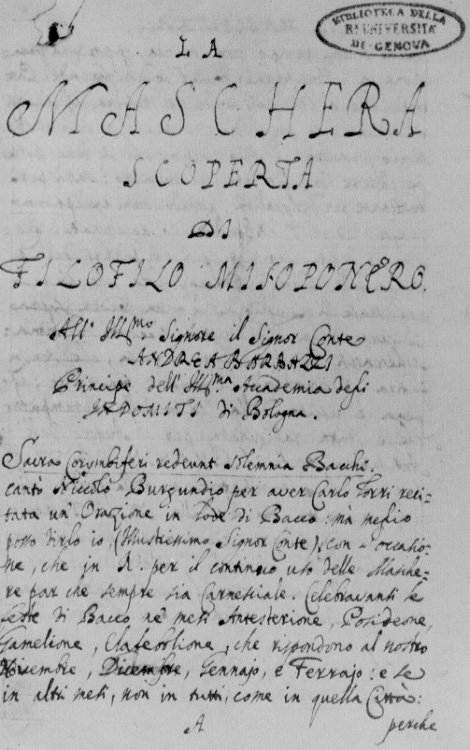 BIBLIOTECA DELLA
R. UNIVERSITÀ
DI GENOVA
LA
MASCHERA
SCOPERTA
DI
FILOFILO MISOPONERO.
All' Ill.mo Signore il Signor Conte
ANDREA BARBAZZI
Principe dell' Ill.ma Accademia degli
INDOMITI di Bologna.
Sacra Corymbiferi redeunt solemnia Bacchi.
cantò Niccolò Burgundio per aver Carlo Torri reci-
tata un' Orazione in lode di Bacco: mà meglio
posso dirlo io, (Illustrissimo Signor Conte), con l'occasio-
ne, che in A. per il continuo uso delle Masche-
re par che sempre sia Carnesciale. Celebravansi le
feste di Bacco ne' mesi Antesterione, Posideone,
Gamelione, Elafebolione, che rispondono al nostro
Novembre, Dicembre, Gennajo, e Ferrajo: e se
in altri mesi, non in tutti, come in quella Città:
A
perche